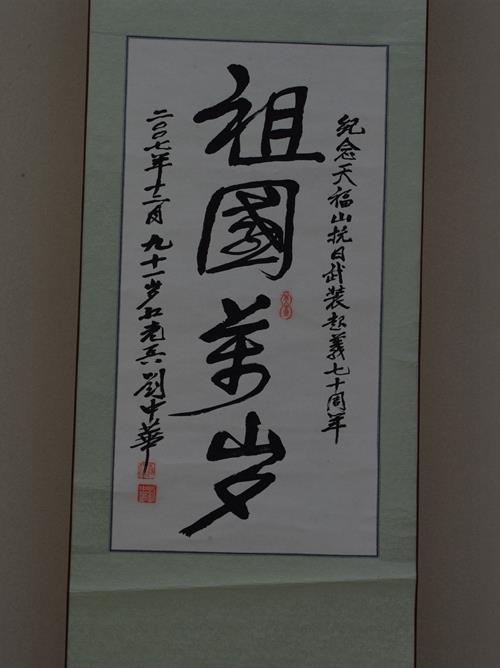 纪念天福山抗日武装起義七十周年
祖國萬岁
二〇〇七年十二月九十一岁红老兵劉中華